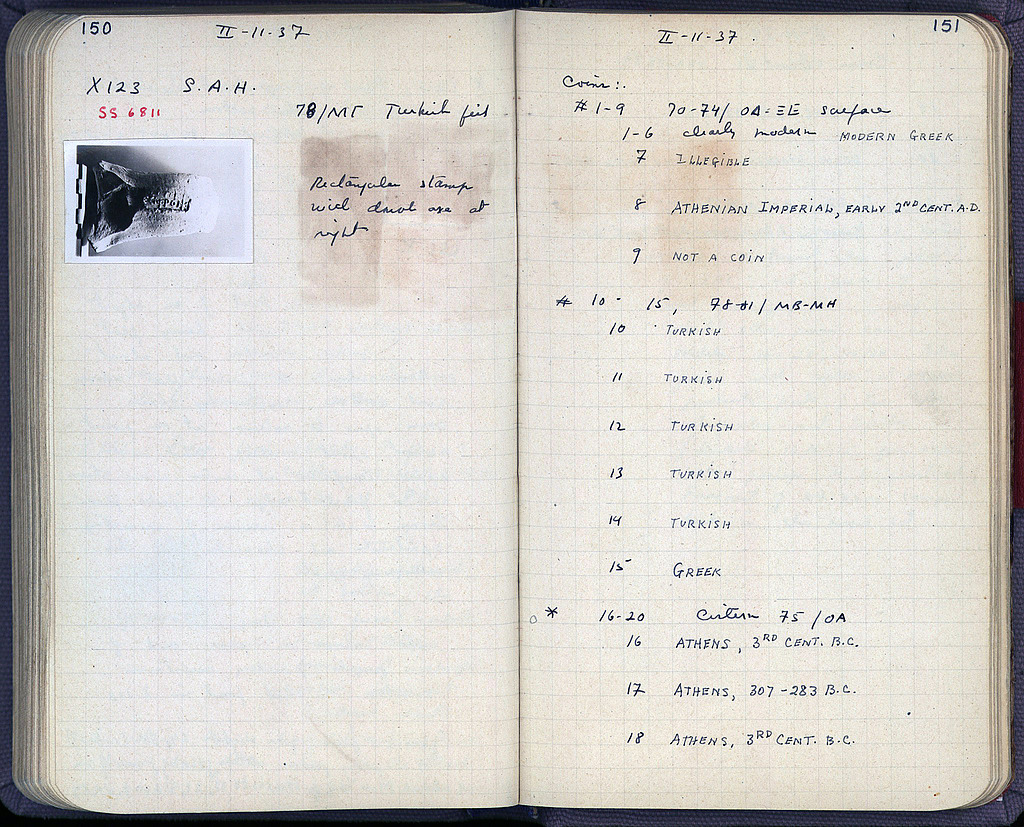 150
II-11-37
X123 S.A.H.
SS 6811
78/ΜΓ Turkish fill
Rectangular stamp
with axe at
right
151
II-11-37.
Coins:.
#1-9 70-74/ΟΑ-ΞΕ surface
1-6 clearly modern MODERN GREEK
7 ILLEGIBLE
8 ATHENIAN IMPERIAL, EARLY 2ND CENT. A.D.
9 NOT A COIN
# 10- 15, 78-81/ΜΒ-ΜΗ
10 TURKISH
11 TURKISH
12 TURKISH
13 TURKISH
14 TURKISH
15 GREEK
* 16-20 Cistern 75/ΟΑ
16 ATHENS, 3RD CENT. B.C.
17 ATHENS, 307-283 B.C.
18 ATHENS, 3RD CENT. B.C.